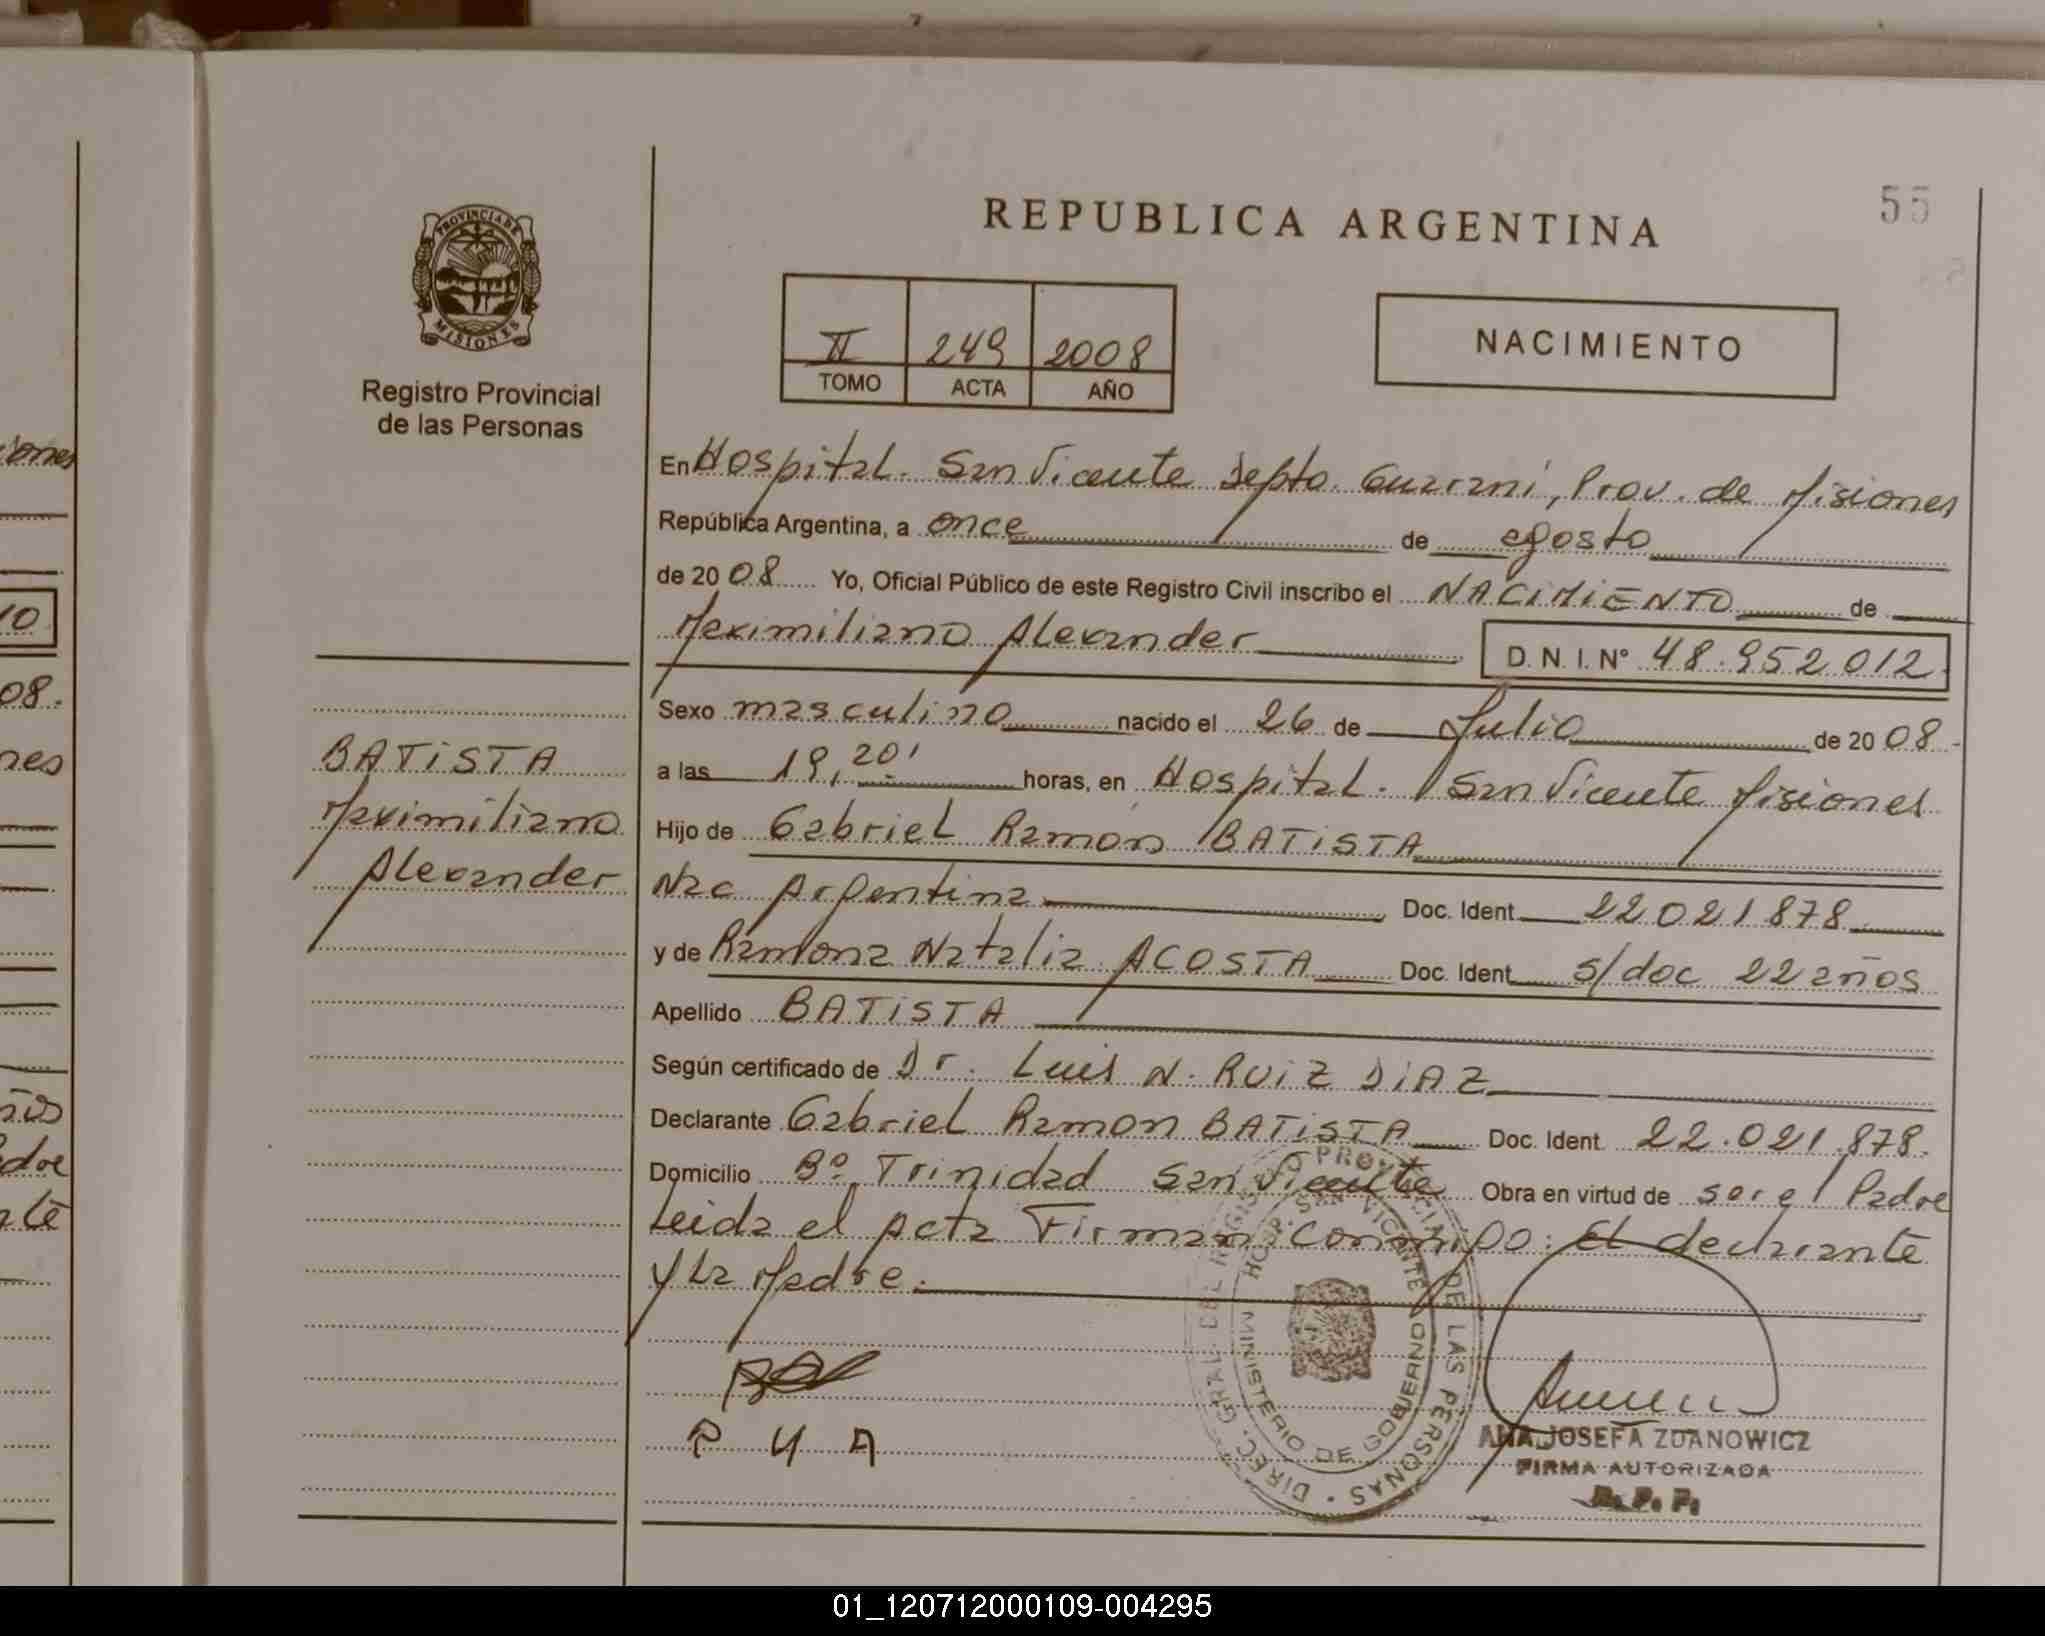 REPUBLICA ARGENTINA
55
PROVINCIA DE
MISIONES
Registro Provincial
de las Personas
II 249 2008
TOMO ACTA AÑO
NACIMIENTO
En Hospital. San Vicente Depto. Guarani, Prov. de Misiones
República Argentina, a once de agosto
de 2008 Yo, Oficial Público de este Registro Civil inscribo el NACIMIENTO de
Maximiliano Alexander D.N.I.Nº 48.952.012.
Sexo masculino nacido el 26 de Julio de 2008
a las 19,20' horas, en Hospital. San Vicente Misiones
Hijo de Gabriel Ramon BATISTA
Nac Argentina Doc. Ident 22021878
y de Ramona Natalia ACOSTA Doc. Ident s/doc 22 años
Apellido BATISTA
Según certificado de Dr. Luis N. RUIZ DIAZ
Declarante Gabriel Ramon BATISTA Doc. Ident. 22.021.878.
Domicilio Bº Trinidad San Vicente Obra en virtud de ser el Padre
Leida el acta Firman conmigo: El declarante
y La Madre.
BATISTA
Maximiliano
Alexander
R U A
DIREC. GRAL. DEL REGISTRO PROVINCIAL DE LAS PERSONAS
HOSP. SAN VICENTE
MINISTERIO DE GOBIERNO
ANA JOSEFA ZDANOWICZ
FIRMA AUTORIZADA
R. P. P.
iones
10
08.
nes
ños
adre
nte
01_120712000109-004295